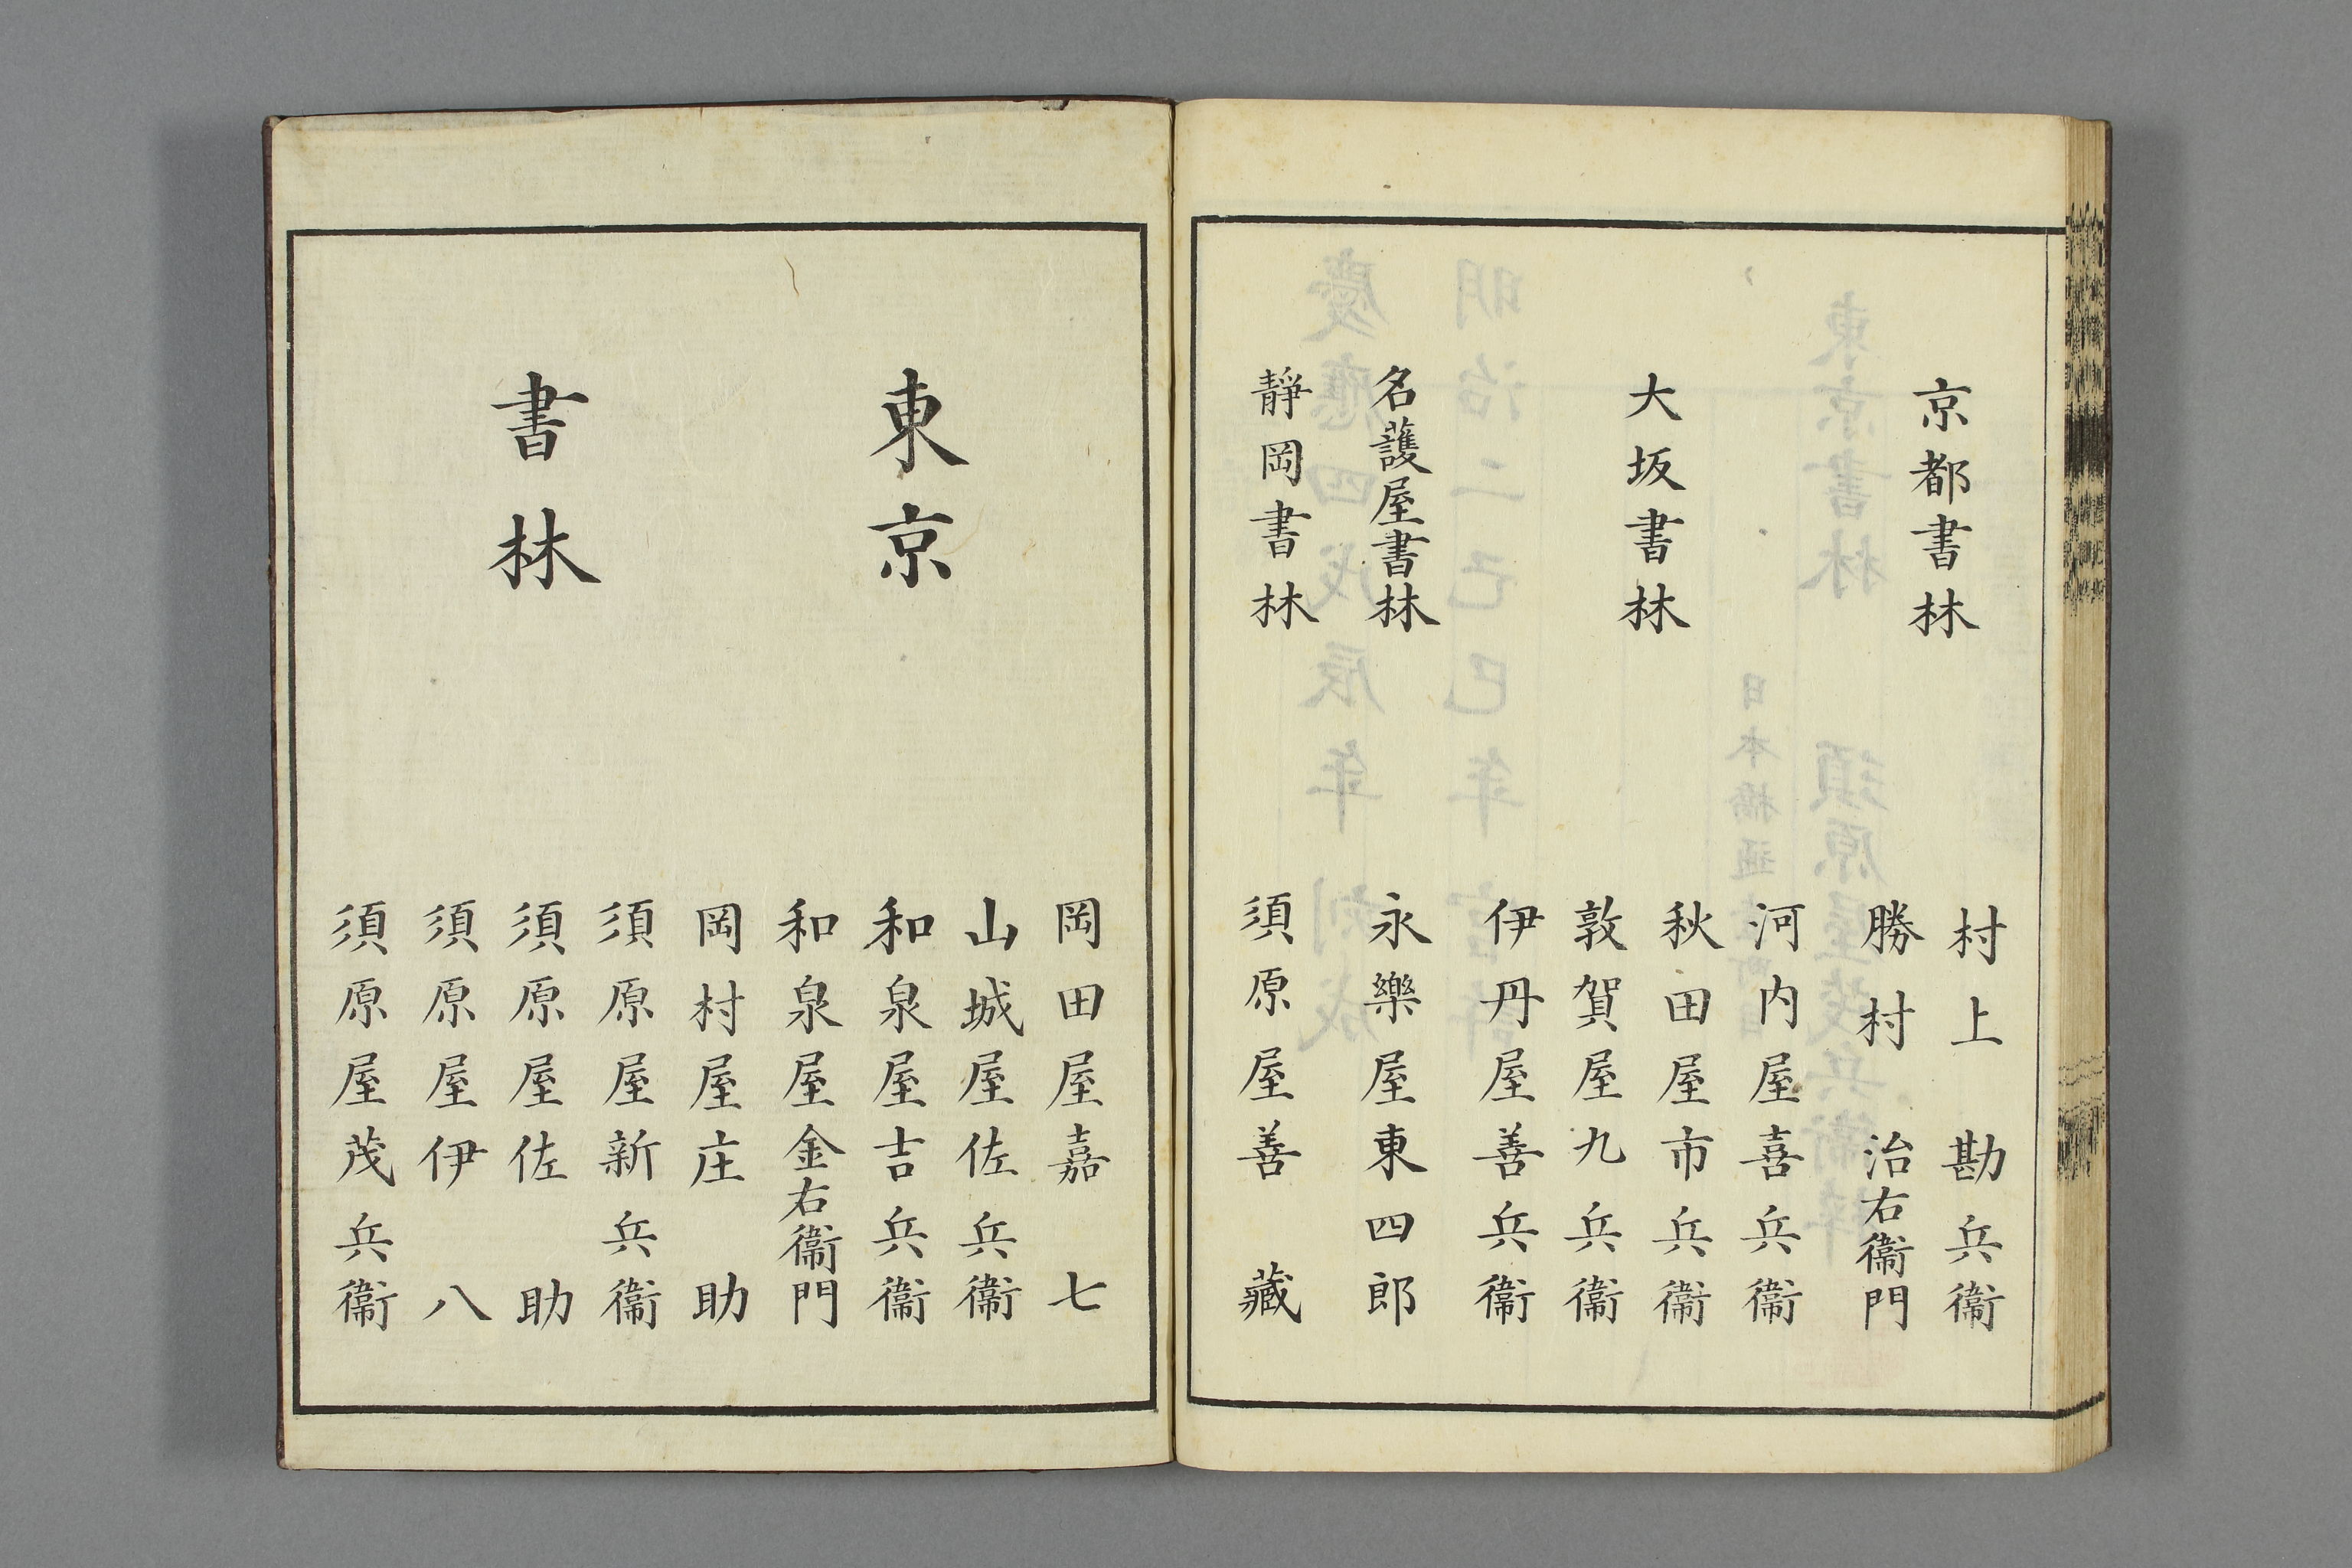 京都書林
村上勘兵衞
勝村治右衞門
大坂書林
河内屋喜兵衞
秋田屋市兵衞
敦賀屋九兵衞
伊丹屋善兵衞
名護屋書林
永樂屋東四郎
靜岡書林
須原屋善藏
東京
書林
岡田屋嘉七
山城屋佐兵衞
和泉屋吉兵衞
和泉屋金右衞門
岡村屋庄助
須原屋新兵衞
須原屋佐助
須原屋伊八
須原屋茂兵衞